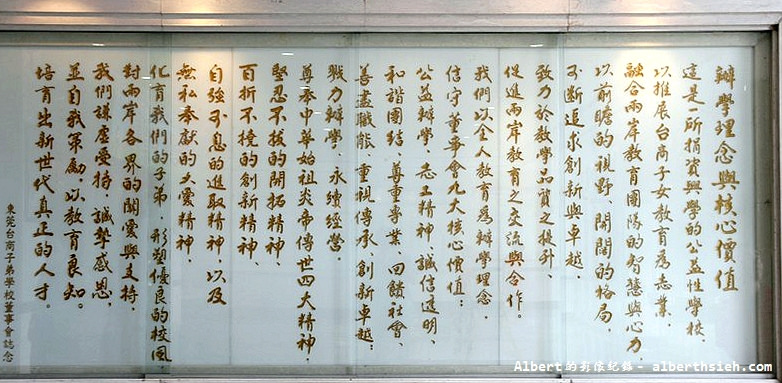 辦學理念與核心價值
這是一所捐資興學的公益性學校，
以推展台商子女教育為志業，
融合兩岸教育團隊的智慧與心力，
以前瞻的視野、開闊的格局，
不斷追求創新與卓越，
致力於教學品質之提升、
促進兩岸教育之交流與合作。
我們以全人教育為辦學理念，
信守董事會九大核心價值：
公益辦學、志工精神、誠信透明、
和諧團結、尊重專業、回饋社會、
善盡職能、重視傳承、創新卓越；
戮力辦學、永續經營。
尊奉中華始祖炎帝傳世四大精神，
堅忍不拔的開拓精神、
百折不撓的創新精神、
自強不息的進取精神，以及
無私奉獻的大愛精神，
化育我們的子弟，形塑優良的校風
對兩岸各界的關愛與支持，
我們謙虛受持，誠摯感恩，
並自我策勵以教育良知。
培育出新世代真正的人才。
東莞台商子弟學校董事會誌念
Albert的影像紀錄 - alberthsieh.com